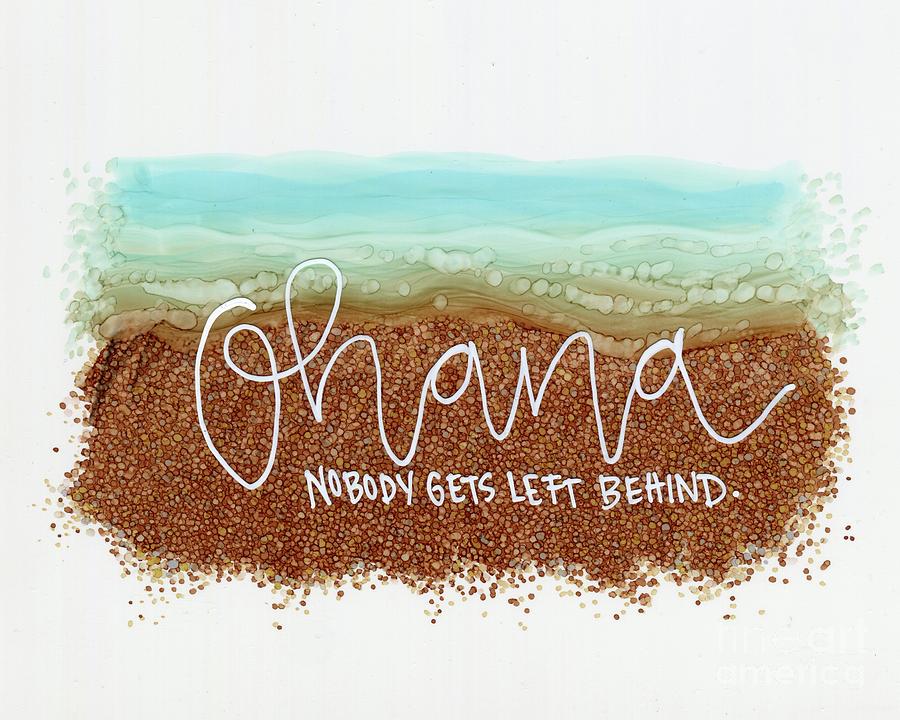 Ohana
NOBODY GETS LEFT BEHIND.
fine art
america